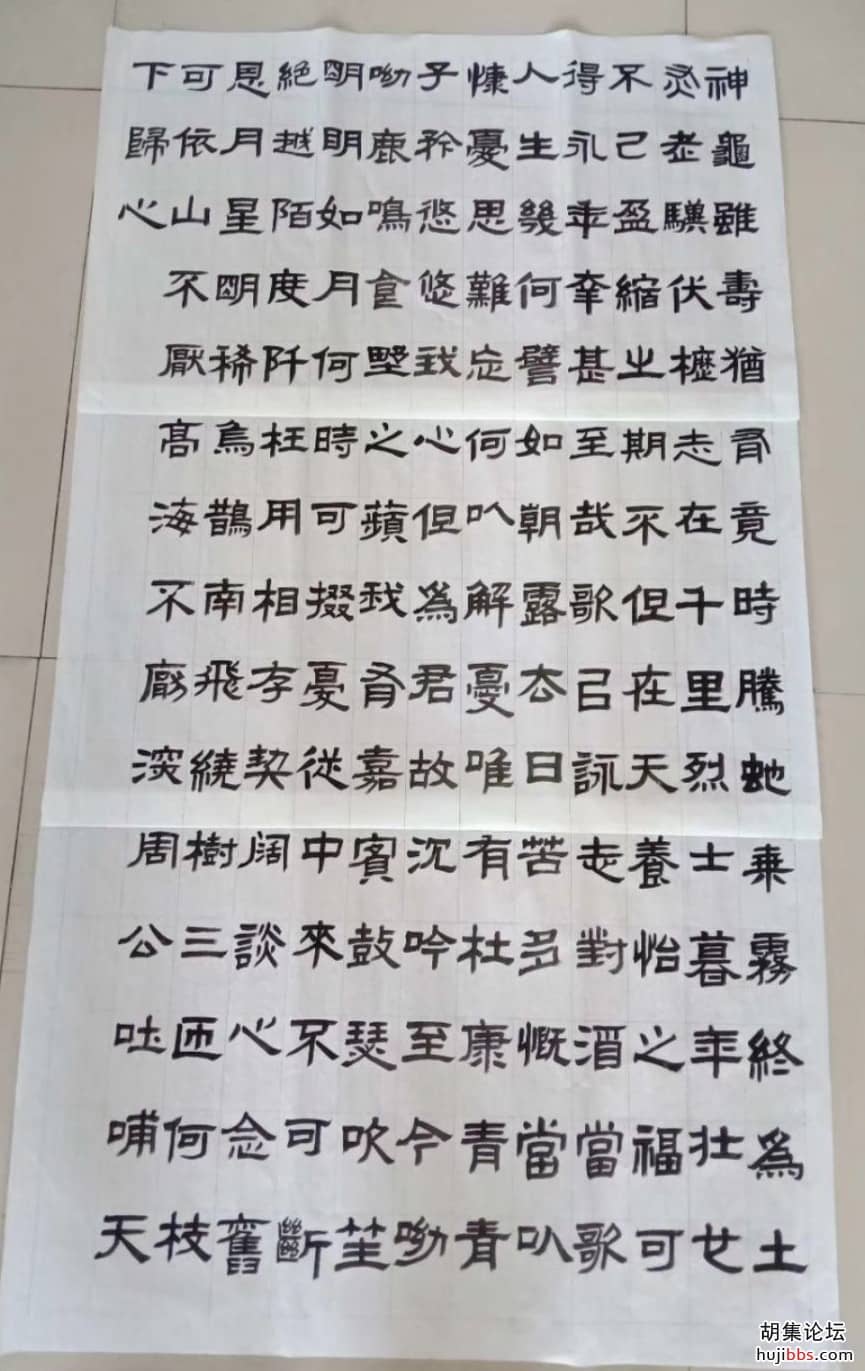 神龜雖壽猶有竟時騰虵乗霧終為土
灰老驥伏櫪志在千里烈士暮年壯心
不已盈縮之期不但在天養怡之福可
得永年幸甚至哉歌以詠志對酒當歌
人生幾何譬如朝露去日苦多慨當以
慷憂思難忘何以解憂唯有杜康青青
子衿悠悠我心但為君故沉吟至今呦
呦鹿鳴食野之蘋我有嘉賓鼓瑟吹笙
明明如月何時可掇憂從中來不可斷
絕越陌度阡枉用相存契阔談心念舊
恩月星明稀烏鵲南飛繞樹三匝何枝
可依山不厭高海不厭深周公吐哺天
下歸心
胡集论坛
hujibbs.com